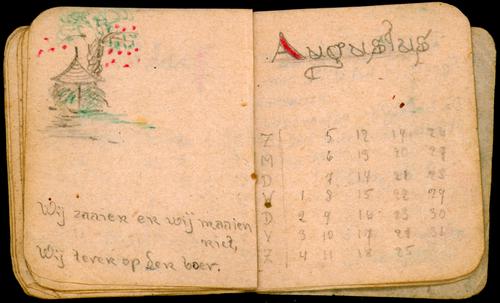 Wij zaaien en wij maaien
niet,
Wij teren op den boer.
Augustus
Z 5 12 19 26
M 6 13 20 27
D 7 14 21 28
V 1 8 15 22 29
D 2 9 16 23 30
V 3 10 17 24 31
Z 4 11 18 25